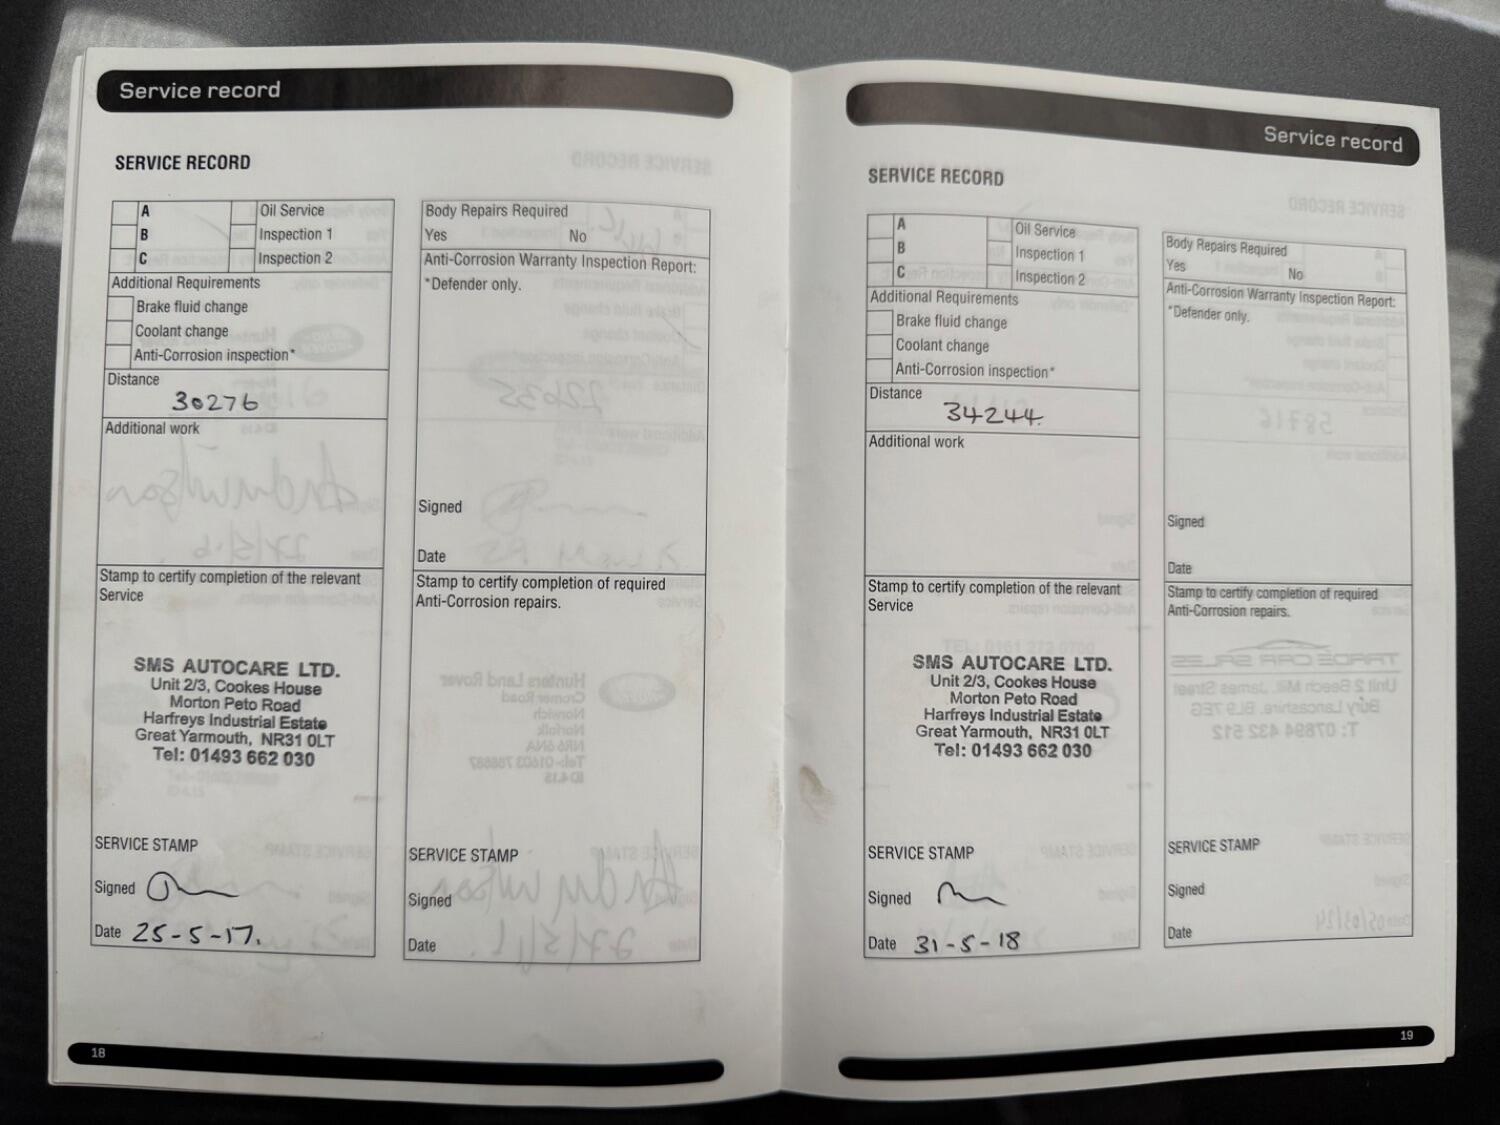 Service record
SERVICE RECORD
A Oil Service
B Inspection 1
C Inspection 2
Additional Requirements
Brake fluid change
Coolant change
Anti-Corrosion inspection*
Distance
30276
Additional work
Stamp to certify completion of the relevant
Service
SMS AUTOCARE LTD.
Unit 2/3, Cookes House
Morton Peto Road
Harfreys Industrial Estate
Great Yarmouth, NR31 0LT
Tel: 01493 662 030
SERVICE STAMP
Signed
Date 25-5-17.
Body Repairs Required
Yes No
Anti-Corrosion Warranty Inspection Report:
*Defender only.
Signed
Date
Stamp to certify completion of required
Anti-Corrosion repairs.
SERVICE STAMP
Signed
Date
18
Service record
SERVICE RECORD
A Oil Service
B Inspection 1
C Inspection 2
Additional Requirements
Brake fluid change
Coolant change
Anti-Corrosion inspection*
Distance
34244.
Additional work
Stamp to certify completion of the relevant
Service
SMS AUTOCARE LTD.
Unit 2/3, Cookes House
Morton Peto Road
Harfreys Industrial Estate
Great Yarmouth, NR31 0LT
Tel: 01493 662 030
SERVICE STAMP
Signed
Date 31-5-18
Body Repairs Required
Yes No
Anti-Corrosion Warranty Inspection Report:
*Defender only.
Signed
Date
Stamp to certify completion of required
Anti-Corrosion repairs.
SERVICE STAMP
Signed
Date
19